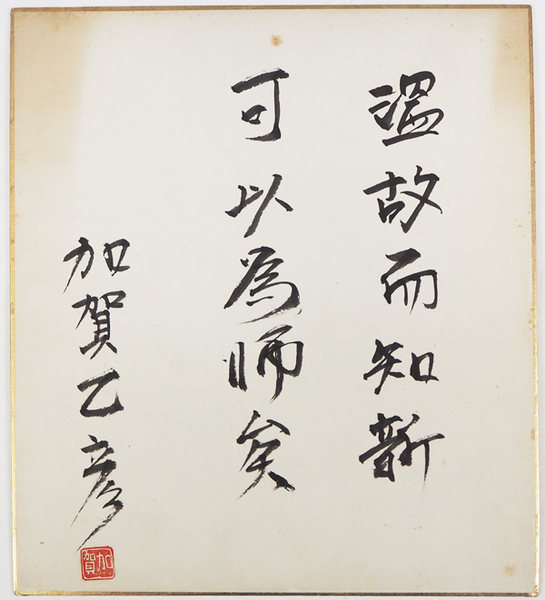 温故而知新
可以為師矣
加賀乙彦
加賀